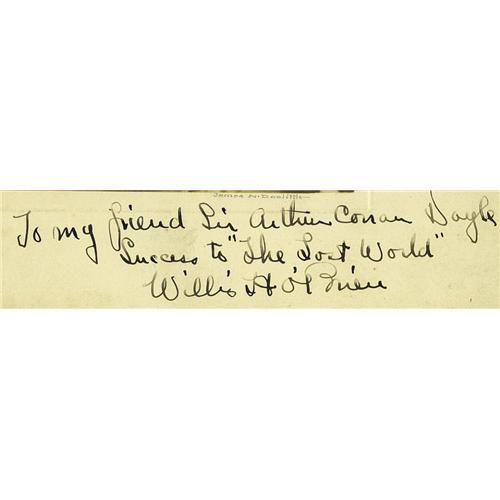 James N. Doolittle
To my friend Sir Arthur Conan Doyle
Success to "The Lost World"
Willis H O'Brien